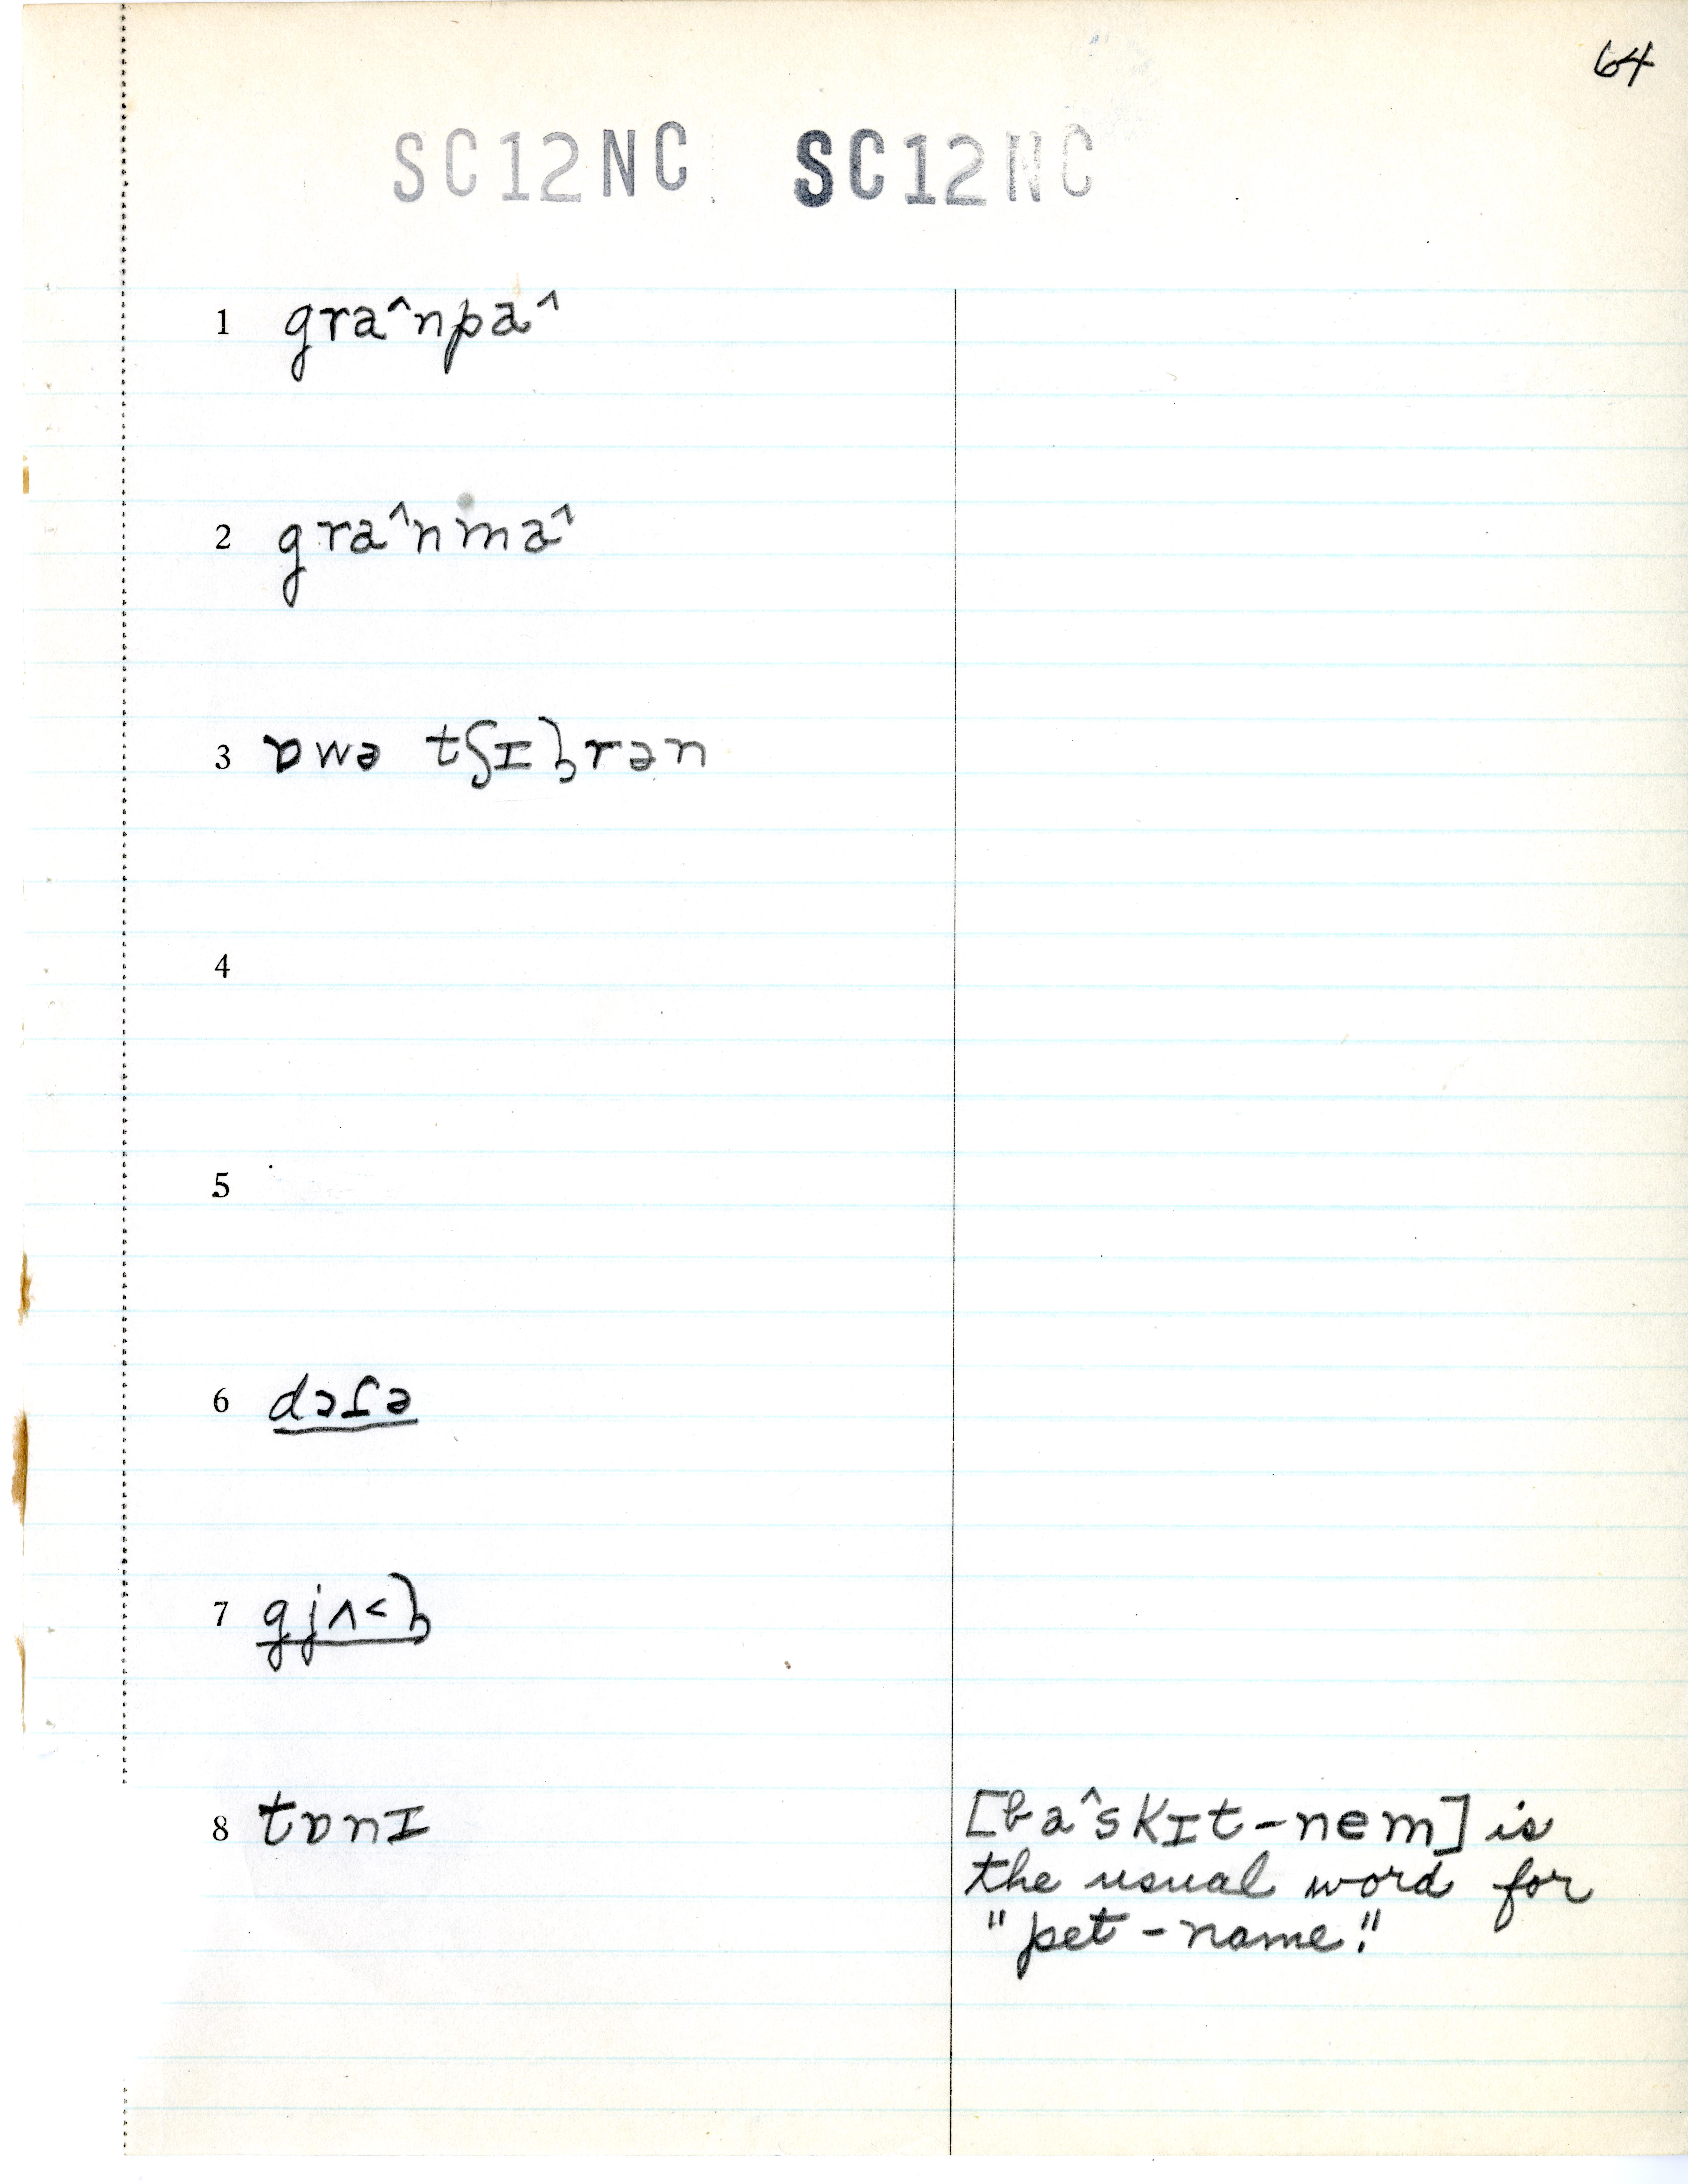 64
SC12NC SC12NC
1 gra^npa^
2 gra^nma^
3 ɒwə tʃɪlrən
4
5
6 dɔɾə
7 gjʌ<l
8 tɒnɪ
[ba^skɪt-nem] is
the usual word for
"pet-name."